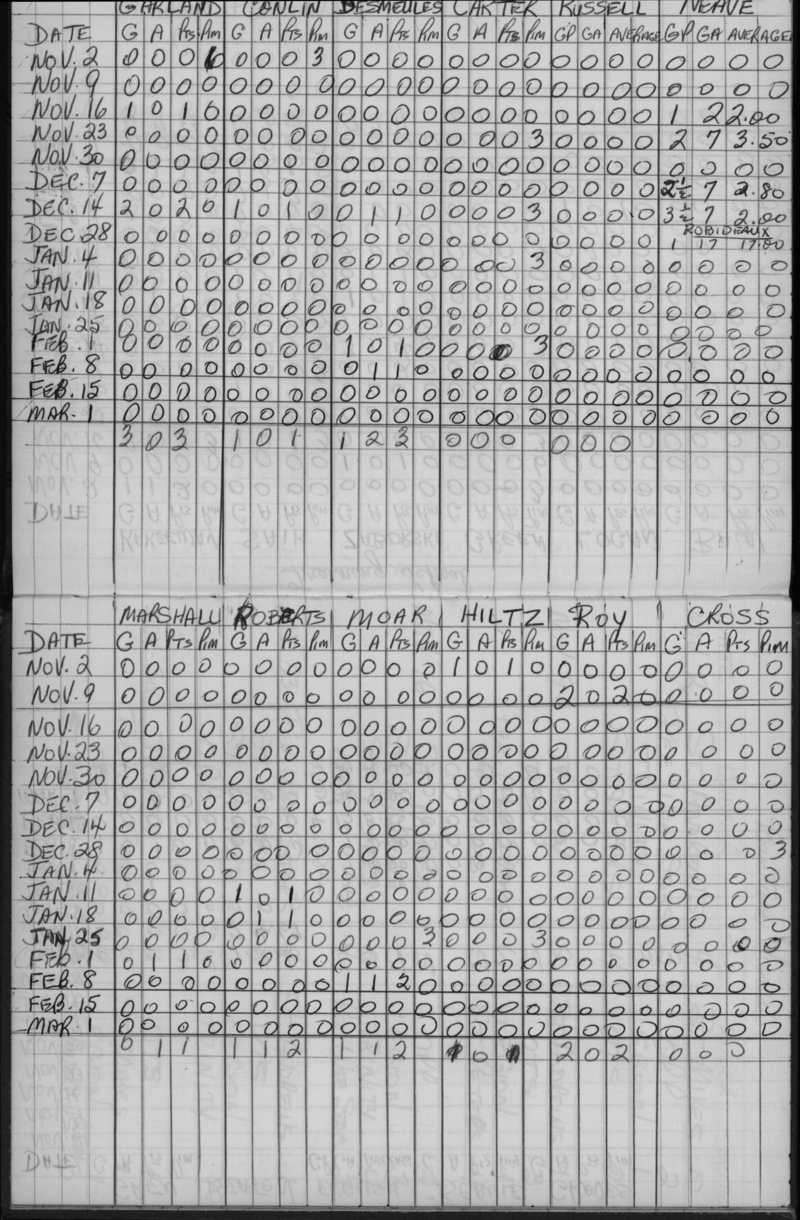 GARLAND CONLIN DESMEULES CARTER RUSSELL NEAVE
DATE G A Pts Pim G A Pts Pim G A Pts Pim G A Pts Pim GP GA AVERAGE GP GA AVERAGE
NOV. 2 0 0 0 6 0 0 0 3 0 0 0 0 0 0 0 0 0 0 0 0 0 0 0 0
NOV. 9 0 0 0 0 0 0 0 0 0 0 0 0 0 0 0 0 0 0 0 0 0 0 0 0
NOV. 16 1 0 1 0 0 0 0 0 0 0 0 0 0 0 0 0 0 0 0 0 1 2 2.00
NOV. 23 0 0 0 0 0 0 0 0 0 0 0 0 0 0 0 3 0 0 0 0 2 7 3.50
NOV. 30 0 0 0 0 0 0 0 0 0 0 0 0 0 0 0 0 0 0 0 0 0 0 0 0
DEC. 7 0 0 0 0 0 0 0 0 0 0 0 0 0 0 0 0 0 0 0 0 2½ 7 2.80
DEC. 14 2 0 2 0 1 0 1 0 0 1 1 0 0 0 0 3 0 0 0 0 3½ 7 2.00
ROBIDEAUX
DEC. 28 0 0 0 0 0 0 0 0 0 0 0 0 0 0 0 0 0 0 0 0 1 17 17.00
JAN. 4 0 0 0 0 0 0 0 0 0 0 0 0 0 0 0 3 0 0 0 0 0 0 0 0
JAN. 11 0 0 0 0 0 0 0 0 0 0 0 0 0 0 0 0 0 0 0 0 0 0 0 0
JAN. 18 0 0 0 0 0 0 0 0 0 0 0 0 0 0 0 0 0 0 0 0 0 0 0 0
JAN. 25 0 0 0 0 0 0 0 0 0 0 0 0 0 0 0 0 0 0 0 0 0 0 0 0
FEB. 1 0 0 0 0 0 0 0 0 1 0 1 0 0 0 0 3 0 0 0 0 0 0 0 0
FEB. 8 0 0 0 0 0 0 0 0 0 1 1 0 0 0 0 0 0 0 0 0 0 0 0 0
FEB. 15 0 0 0 0 0 0 0 0 0 0 0 0 0 0 0 0 0 0 0 0 0 0 0 0
MAR. 1 0 0 0 0 0 0 0 0 0 0 0 0 0 0 0 0 0 0 0 0 0 0 0 0
3 0 3 1 0 1 1 2 3 0 0 0 0 0 0
MARSHALL ROBERTS MOAR HILTZ ROY CROSS
DATE G A Pts Pim G A Pts Pim G A Pts Pim G A Pts Pim G A Pts Pim G A Pts Pim
NOV. 2 0 0 0 0 0 0 0 0 0 0 0 0 1 0 1 0 0 0 0 0 0 0 0 0
NOV. 9 0 0 0 0 0 0 0 0 0 0 0 0 0 0 0 0 2 0 2 0 0 0 0 0
NOV. 16 0 0 0 0 0 0 0 0 0 0 0 0 0 0 0 0 0 0 0 0 0 0 0 0
NOV. 23 0 0 0 0 0 0 0 0 0 0 0 0 0 0 0 0 0 0 0 0 0 0 0 0
NOV. 30 0 0 0 0 0 0 0 0 0 0 0 0 0 0 0 0 0 0 0 0 0 0 0 0
DEC. 7 0 0 0 0 0 0 0 0 0 0 0 0 0 0 0 0 0 0 0 0 0 0 0 0
DEC. 14 0 0 0 0 0 0 0 0 0 0 0 0 0 0 0 0 0 0 0 0 0 0 0 0
DEC. 28 0 0 0 0 0 0 0 0 0 0 0 0 0 0 0 0 0 0 0 0 0 0 0 3
JAN. 4 0 0 0 0 0 0 0 0 0 0 0 0 0 0 0 0 0 0 0 0 0 0 0 0
JAN. 11 0 0 0 0 1 0 1 0 0 0 0 0 0 0 0 0 0 0 0 0 0 0 0 0
JAN. 18 0 0 0 0 0 1 1 0 0 0 0 0 0 0 0 0 0 0 0 0 0 0 0 0
JAN. 25 0 0 0 0 0 0 0 0 0 0 0 3 0 0 0 3 0 0 0 0 0 0 0 0
FEB. 1 0 1 1 0 0 0 0 0 0 0 0 0 0 0 0 0 0 0 0 0 0 0 0 0
FEB. 8 0 0 0 0 0 0 0 0 1 1 2 0 0 0 0 0 0 0 0 0 0 0 0 0
FEB. 15 0 0 0 0 0 0 0 0 0 0 0 0 0 0 0 0 0 0 0 0 0 0 0 0
MAR. 1 0 0 0 0 0 0 0 0 0 0 0 0 0 0 0 0 0 0 0 0 0 0 0 0
0 1 1 1 1 2 1 1 2 0 2 0 2 0 0 0